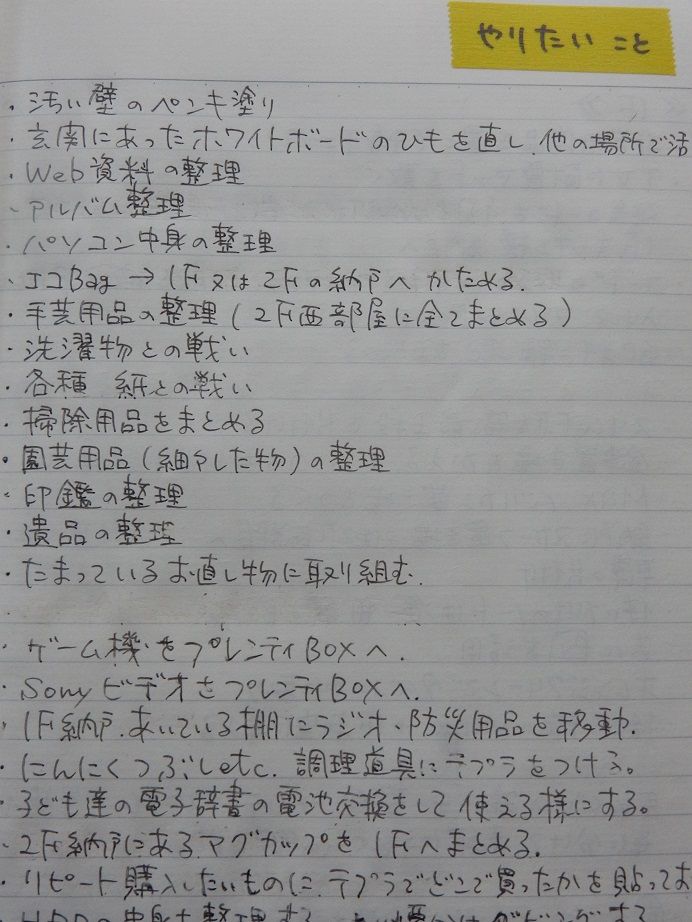 やりたいこと
・汚い壁のペンキ塗り
・玄関にあったホワイトボードのひもを直し、他の場所で活
・Web資料の整理
・アルバム整理
・パソコン中身の整理
・エコBag → 1F又は2Fの納戸へかためる.
・手芸用品の整理(2F西部屋に全てまとめる)
・洗濯物との戦い
・各種 紙との戦い
・掃除用品をまとめる
・園芸用品(細々した物)の整理
・印鑑の整理
・遺品の整理
・たまっているお直し物に取り組む.
・ゲーム機をプレンティBOXへ.
・Sonyビデオをプレンティ BOXへ.
・1F納戸.あいている棚にラジオ・防災用品を移動.
・にんにくつぶしetc.調理道具にテプラをつける。
・子ども達の電子辞書の電池交換をして使える様にする。
・2F納戸にあるマグカップを1Fへまとめる.
・リピート購入したいものに、テプラでどこで買ったかを貼ってお
・HDDの中身を整理する